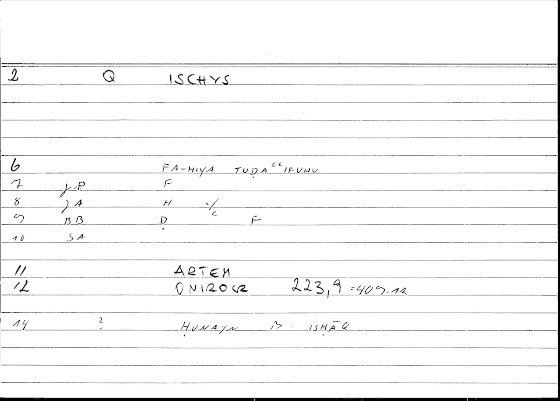 2 Q ISCHYS
6 FA-HIYA TUḌAʿʿIFUHU
7 J.P F
8 JA H ·/c
9 BB Ḍ F
10 SA
11 ARTEM
12 ONIROCR 223,9 =409.12
14 ? ḤUNAYN B. ISḤĀQ